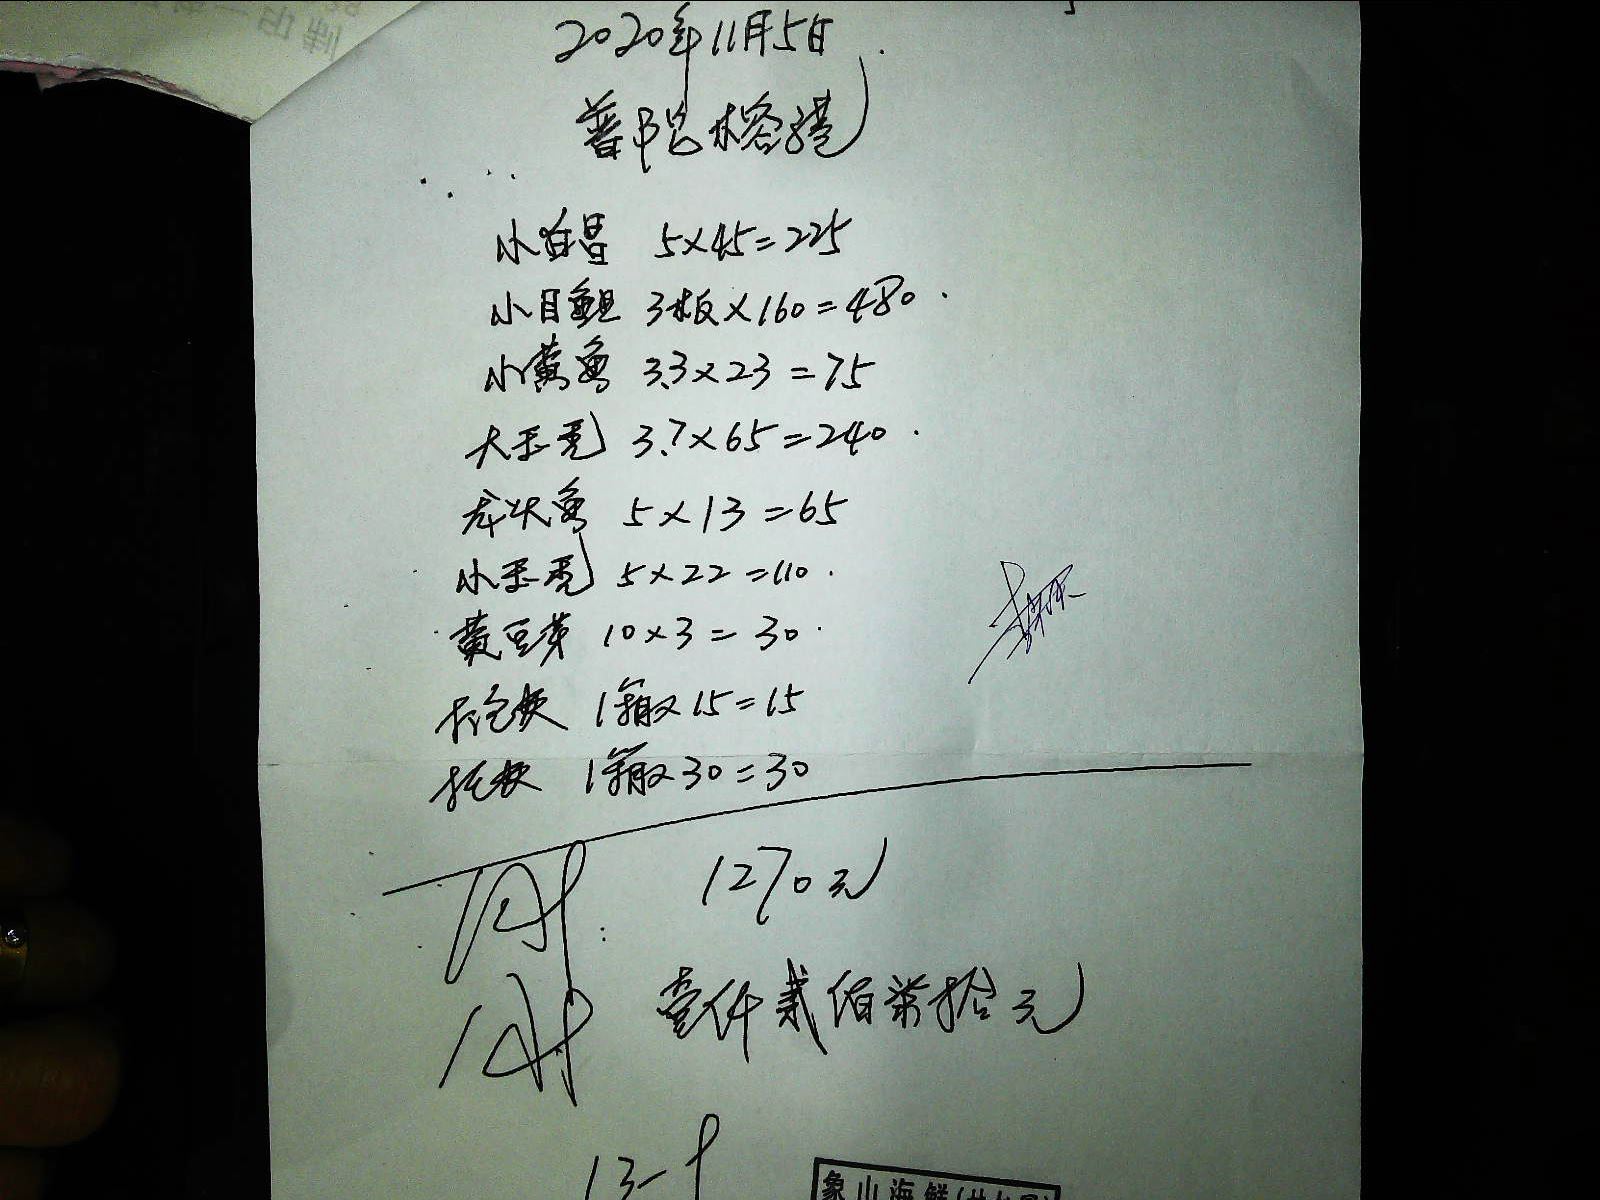 2020年11月5日
普陀榕港
小白昌 5×45=225
小目鱼旦 3板×160=480
小黄鱼 3.3×23=75
大玉秃 3.7×65=240
龙头鱼 5×13=65
小玉秃 5×22=110
黄豆芽 10×3=30
1箱×15=15
1箱×30=30
1270元
壹仟贰佰柒拾元
象山海鲜